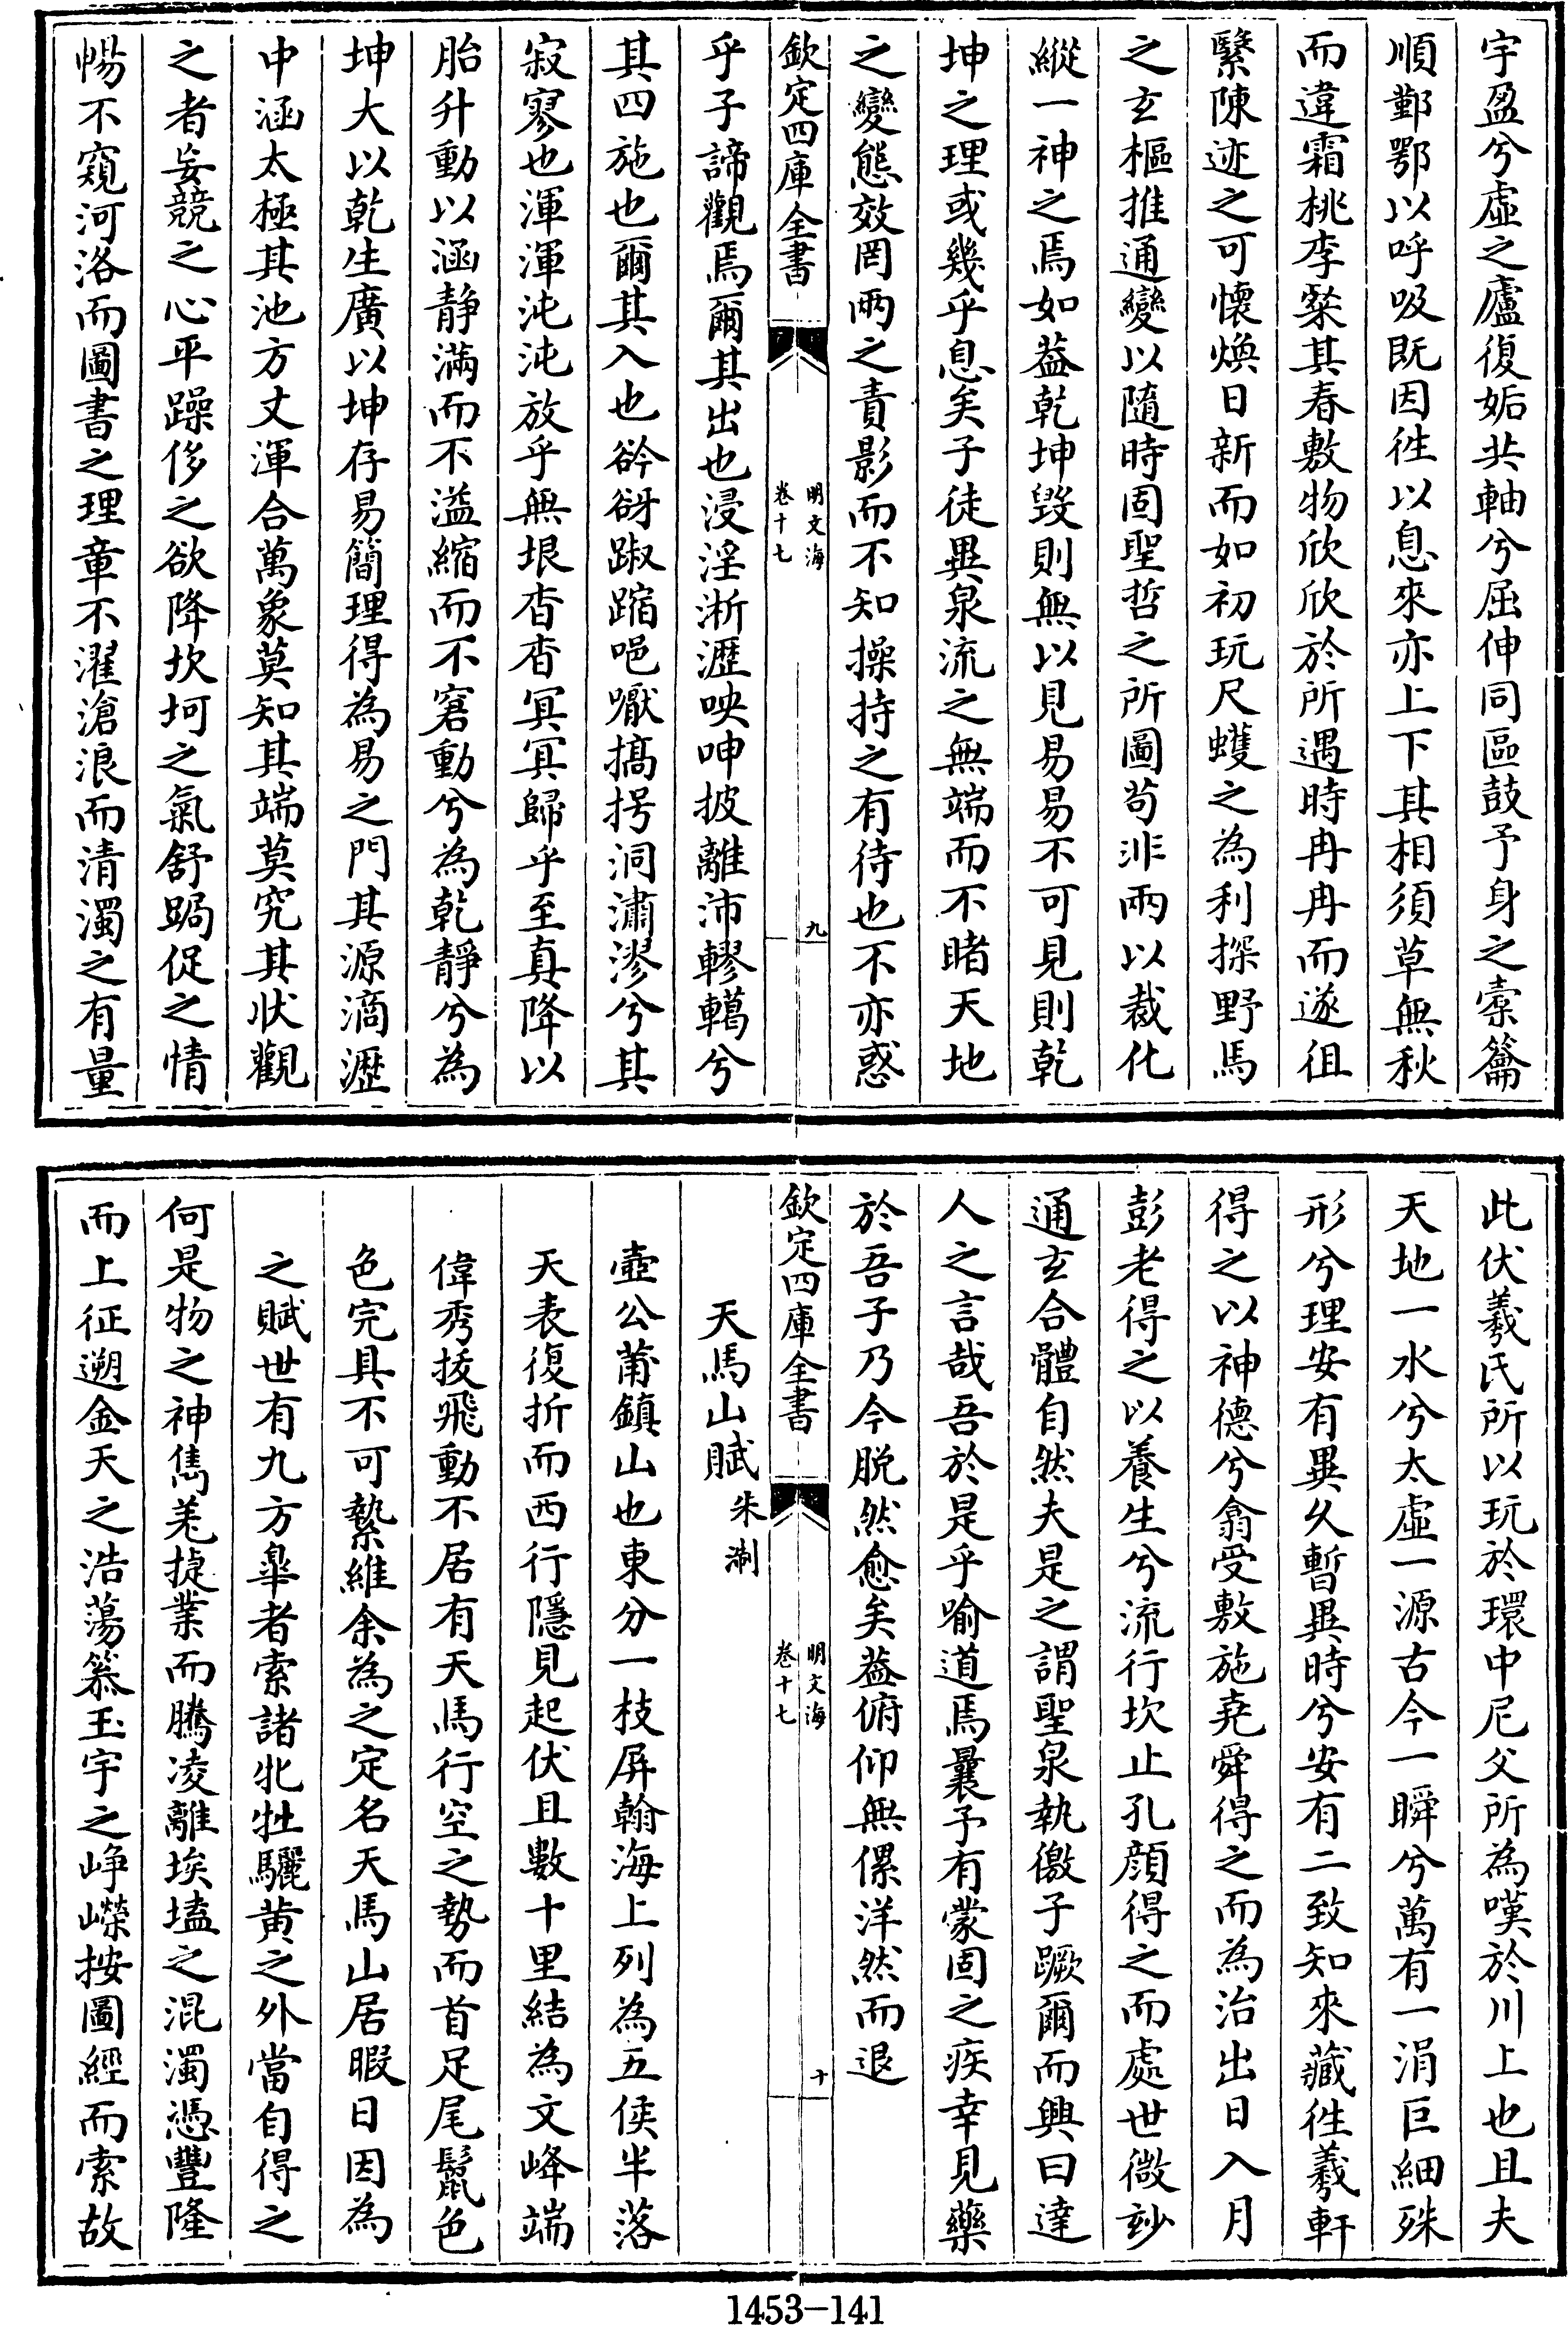 宇盈兮虛之廬復姤共軸兮屈伸同區鼓予身之橐籥
順鄞鄂以呼吸既因徃以息來亦上下其相須草無秋
而違霜桃李粲其春敷物欣欣於所遇時冉冉而遂徂
繄陳迹之可懷煥日新而如初玩尺蠖之為利探野馬
之玄樞推通變以隨時固聖哲之所圖茍非兩以裁化
縱一神之焉如葢乾坤毀則無以見易易不可見則乾
坤之理或幾乎息矣子徒異泉流之無端而不睹天地
之變態效罔兩之責影而不知操持之有待也不亦惑
欽定四庫全書
明文海
卷十七
九
乎子諦觀焉爾其出也浸淫淅瀝咉呻披離沛轇轕兮
其四施也爾其入也谽谺踧蹜唈嚈搞拐洞潚漻兮其
寂寥也渾渾沌沌放乎無垠杳杳冥冥歸乎至真降以
胎升動以涵静滿而不溢縮而不窘動兮為乾靜兮為
坤大以乾生廣以坤存易簡理得為易之門其源滴瀝
中涵太極其池方丈渾合萬象莫知其端莫究其狀觀
之者妄競之心平躁侈之欲降坎坷之氣舒跼促之情
暢不窺河洛而圖書之理章不濯滄浪而清濁之有量
此伏羲氏所以玩於環中尼父所為嘆於川上也且夫
天地一水兮太虛一源古今一瞬兮萬有一涓巨細殊
形兮理安有異久暫異時兮安有二致知來藏徃羲軒
得之以神德兮翕受敷施堯舜得之而為治出日入月
彭老得之以養生兮流行坎止孔顔得之而處世微玅
通玄合體自然夫是之謂聖泉執徼子蹶爾而興曰達
人之言哉吾於是乎喻道焉曩予有蒙固之疾幸見藥
於吾子乃今脱然愈矣葢俯仰無傫洋然而退
欽定四庫全書
明文海
卷十七
十
天馬山賦 朱淛
壺公莆鎮山也東分一枝屏翰海上列為五侯半落
天表復折而西行隱見起伏且數十里結為文峰端
偉秀拔飛動不居有天馬行空之勢而首足尾鬛色
色完具不可縶維余為之定名天馬山居暇日因為
之賦世有九方臯者索諸牝牡驪黄之外當自得之
何是物之神雋羗捷業而騰凌離埃壒之混濁憑豐隆
而上征遡金天之浩蕩簉玉宇之崢嶸按圖經而索故
1453-141